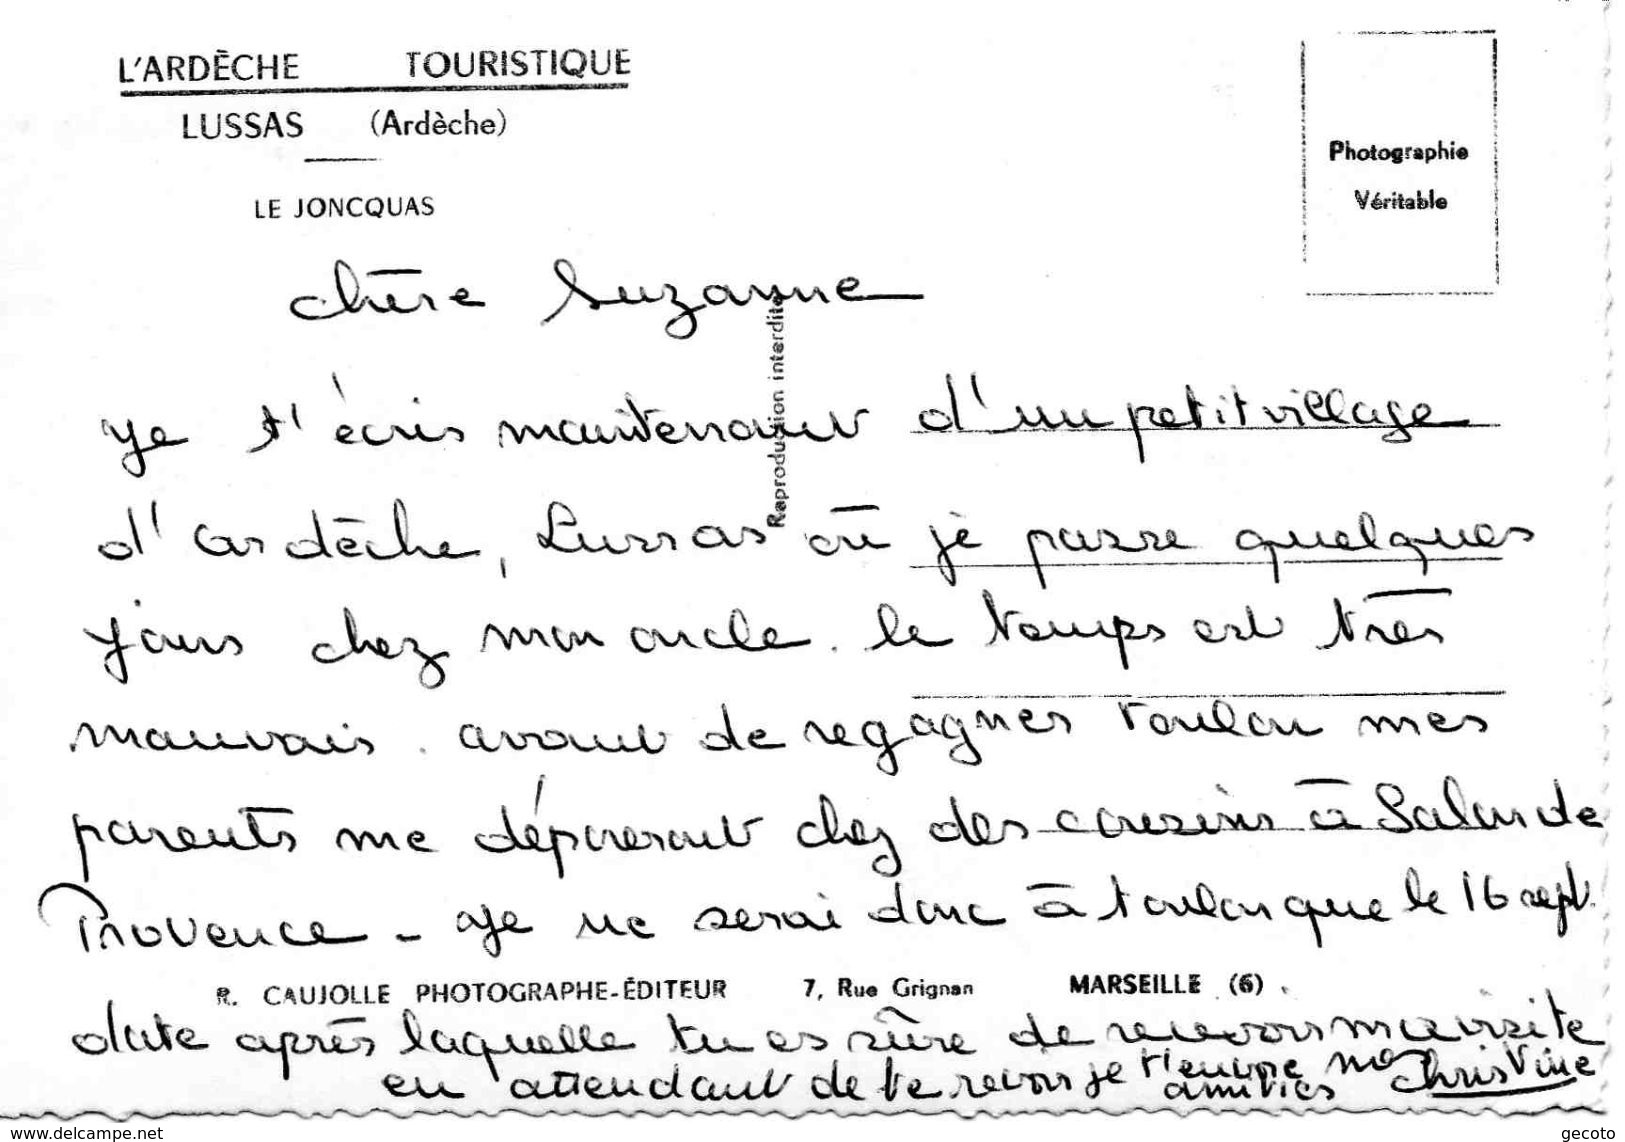 L'ARDÈCHE TOURISTIQUE
LUSSAS (Ardèche)
LE JONCQUAS
Photographie
Véritable
Reproduction interdite
chère Suzanne
je t'écris maintenant d'un petit village
d'ardèche, Lussas où je passe quelques
jours chez mon oncle. le temps est très
mauvais. avant de regagner toulon mes
parents me déposeront chez des cousins à Salon de
Provence - je ne serai donc à toulon que le 16 sept.
R. CAUJOLLE PHOTOGRAPHE-ÉDITEUR 7, Rue Grignan MARSEILLE (6)
date après laquelle tu es sûre de recevoir ma visite
en attendant de te revoir je t'envoie mes
amitiés Christine
www.delcampe.net
gecoto